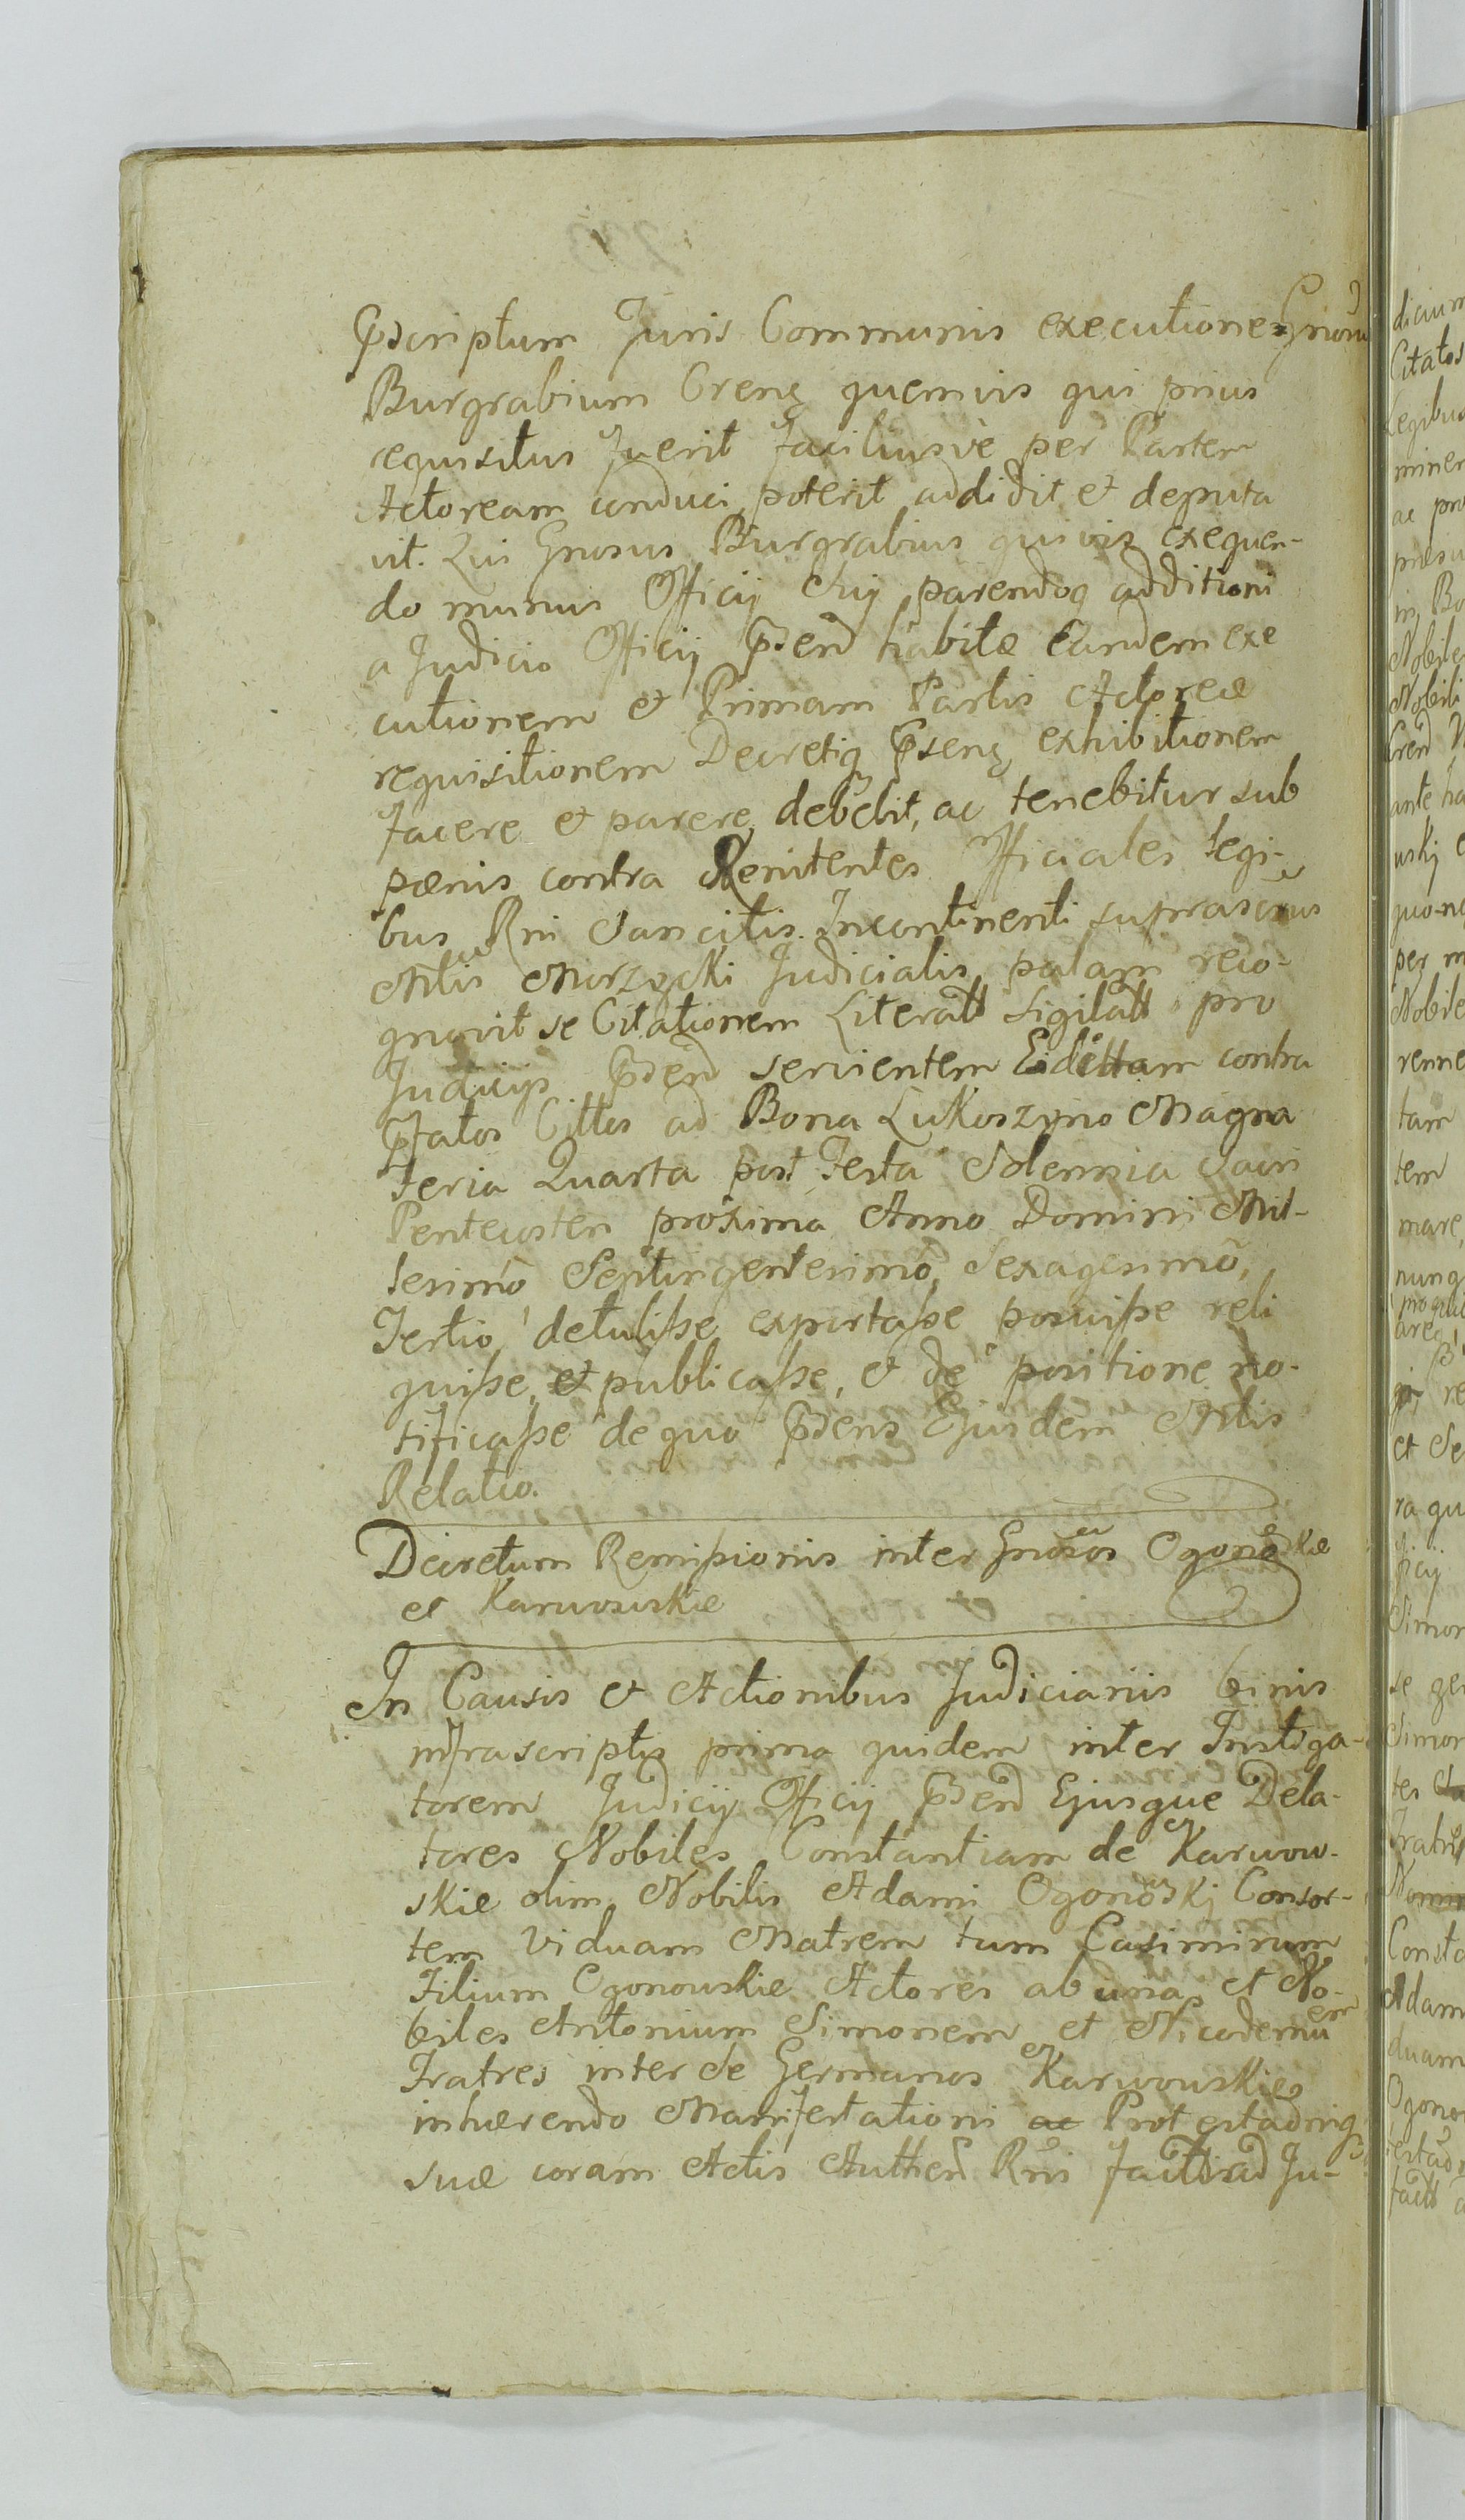 Pscriptum Juris Communis executione Gnosum
Burgrabium Crens quemvis qui prius
requisitus fuerit faciliusve per Partem
Actoream conduci poterit addidit et deputa
vit. Qui Gnosus Burgrabius quivis exequen-
do munus Officij sui parendoq additioni
a Judicio Officij Psend habitæ Eandem exe
cutionem et Primam Partis Actoreæ
requisitionem Decretiq Psens exhibitionem
facere et parere debebit, ac tenebitur sub
pænis contra Renitentes Officiales legi-
bus Rni Sancitis. Incontinenti suprascrius
Mlis Murzycki Judicialis palam reco-
gnovit se Citationem Literatt Sigilatt pro
Judicijs Psend servientem Eidettam contra
Pfatos Cittos ad Bona Lukoszyno Magna
Feria Quarta post Festa Solennia Sacri
Pentecosten proxima Anno Domini Mil-
lesimo Septingentesimo, Sexagesimo,
Tertio detuliße exportaße posuiße reli
quiße, et publicaße, et de positione no-
tificaße de quo Psens Ejusdem Mlis
Relatio.
Decretum Remißionis inter Gnosos Ogonoskie
et Karwowskie
In Causis et Actionibus Judiciariis binis
infrascriptis prima quidem inter Instiga-
torem Judicij Officij Psend Ejusque Dela-
tores Nobiles Constantiam de Karwow-
skie olim Nobilis Adami Ogonoskj Consor-
tem Viduam Matrem tum Casimirum
Filium Ogonowskie Actores ab una et No-
biles Antonium Simonem et Nicodemu
Fratres inter se Germanos Karwowskie
inhærendo Manifestationi ac Protestadniq
suæ coram Actis Authen Rni factisad Ju-